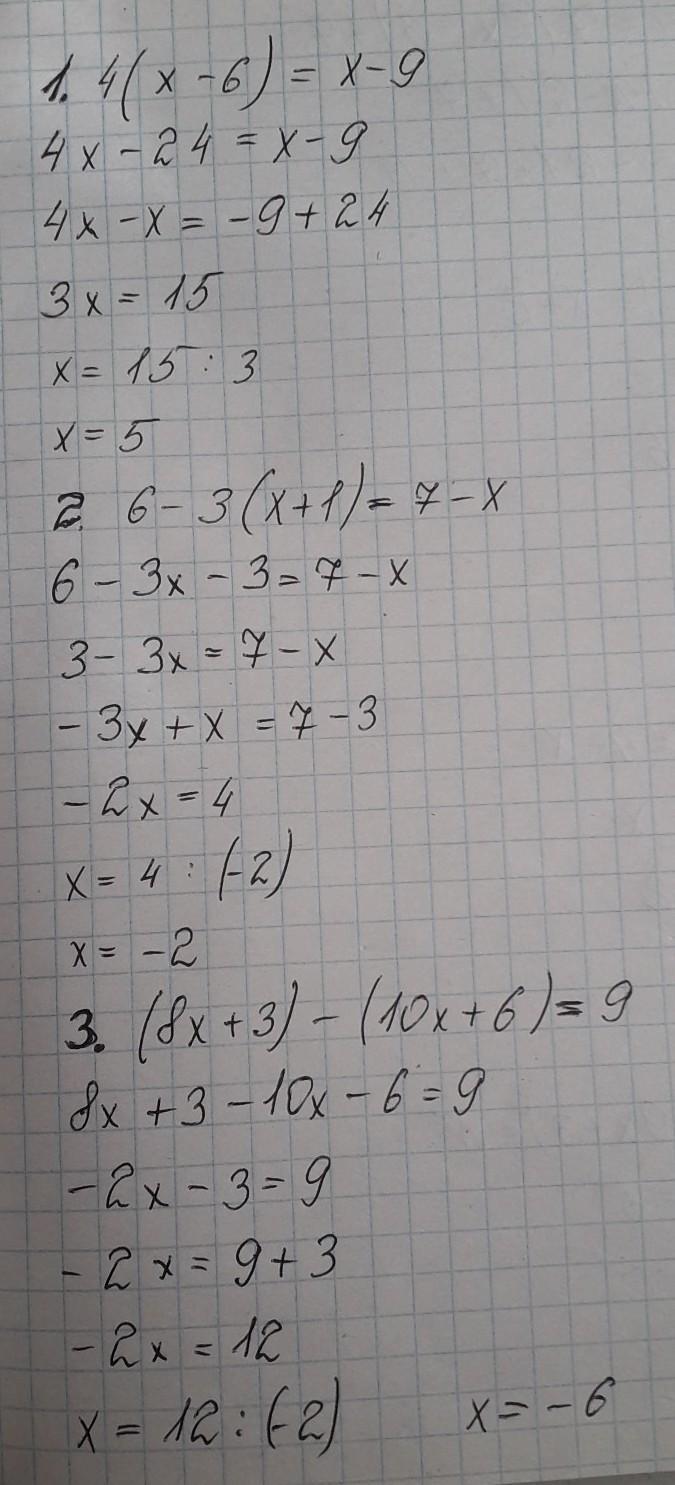 1. 4(x-6) = x-9
4x-24 = x-9
4x-x = -9+24
3x = 15
x = 15 : 3
x = 5
2. 6-3(x+1) = 7-x
6-3x-3 = 7-x
3-3x = 7-x
-3x+x = 7-3
-2x = 4
x = 4 : (-2)
x = -2
3. (8x+3)-(10x+6) = 9
8x+3-10x-6 = 9
-2x-3 = 9
-2x = 9+3
-2x = 12
x = 12 : (-2) x = -6